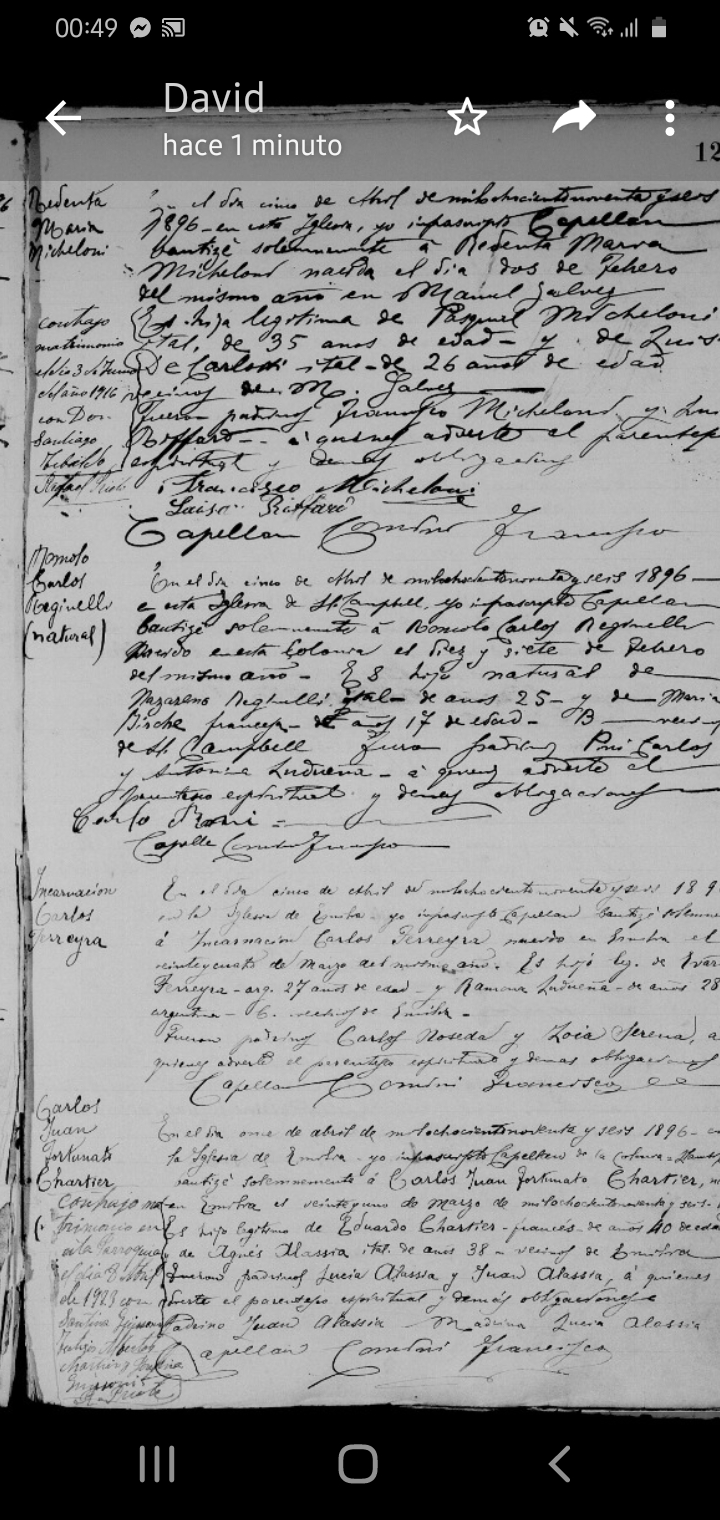 00:49
David
hace 1 minuto
12
Redenta
Maria
Micheloni
el dia cinco de Abril de milochocientosnoventa y seis
1896 - en esta Iglesia, yo infrascripto Capellan
bautizé solemnemente á Redenta Maria
Micheloni nacida el dia dos de Febero
del mismo año en Manuel Galvez
Es hija legitima de Pasqual Micheloni
ital. de 35 anos de edad - y de Luis
De Carlo ital - de 26 años de edad
vecinos de M. Galvez
Fueron padrinos Francisco Micheloni y
Riffard - á quienes adverte el parentes
espiritual y demas obligaciones
contrajo
matrimonio
el dia 3 de Junio
del año 1916
con Don
Santiago
Francisco Micheloni
Luisa Riffard
Capellan Comini Francisco
Romolo
Carlos
Reginelli
(natural)
En el dia cinco de Abril de milochocientosnoventa y seis 1896 -
e esta Iglesia de St. Campbell, yo infrascripto Capellan
bautizé solemnemente á Romolo Carlos Reginelli
nacido en esta Colonia el diez y siete de Febero
del mismo año - Es hijo natural de
Nazareno Reginelli ital - de anos 25 - y de Maria
Birche francesa - de años 17 de edad - B - vecin
de St. Campbell Furon padrinos Carlos
y Antonina Ludueña - á quienes adverte el
parentesco espiritual y demas obligaciones
Carlo
Capella Comini Francisco
Incarnacion
Carlos
Ferreyra
En el dia cinco de Abril de milochocientosnoventa y seis 189
en la Iglesia de Emilia yo infrascripto Capellan bautizé solemne
á Incarnacion Carlos Ferreyra nacido en Emilia el
veintycuatro de Marzo del mismo año. Es hijo leg. de Evar
Ferreyra - arg. 27 años de edad - y Ramona Ludueña - de años 28
argentina - vecinos de Emilia -
Fueron padrinos Carlos Noseda y Zoia Serena, a
quienes adverte el parentesco espiritual y demas obligaciones
Capellan Comini Francisco
Carlos
Juan
Fortunato
Chartier
En el dia once de abril de milochocientosnoventa y seis 1896 - en
la Iglesia de Emilia - yo infrascripto Capellan de la Colonia
bautizé solemnemente á Carlos Juan Fortunato Chartier, na
en Emilia el veintyuno de marzo de milochocientosnoventa y seis -
Es hijo legitimo de Eduardo Chartier - francés - de años 40 de eda
y de Agnés Alassia ital. de anos 38 - vecinos de Emilia
Fueron padrinos Lucia Alassia y Juan Alassia, á quienes
adverte el parentesco espiritual y demas obligaciones
Padrino Juan Alassia Madrina Lucia Alassia
Capellan Comini Francisco
Contrajo ma
trimonio en
esta Parroquia
el dia 8
de 1923 con